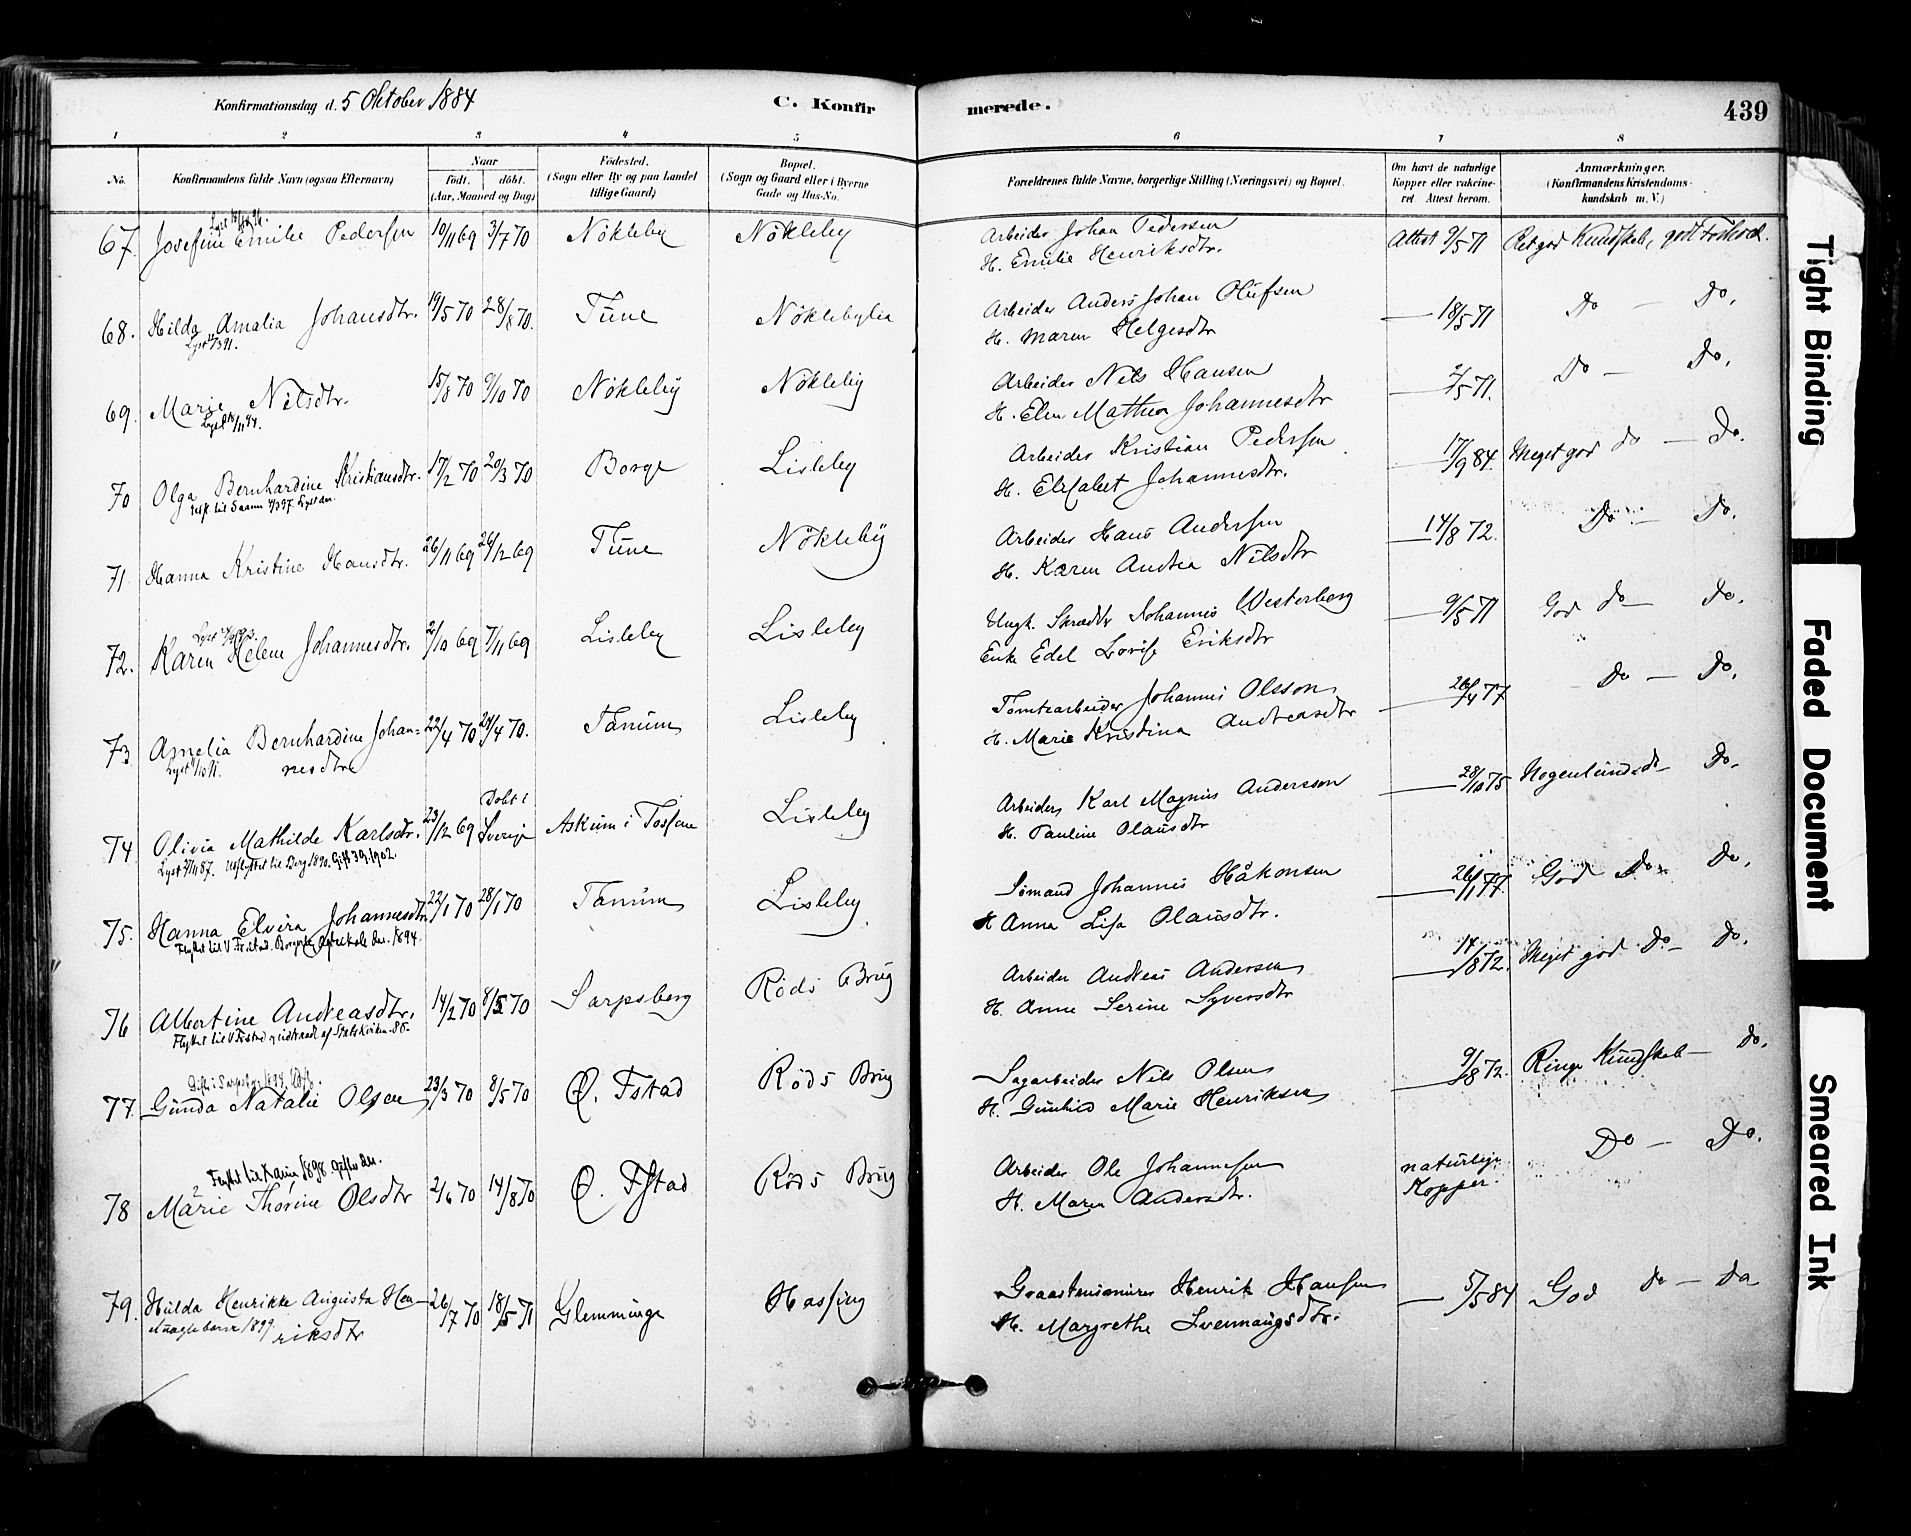 Konfirmationsdag d. 5 Oktober 1884 C. Konfirmerede. 439
1 2 3 4 5 6 7 8
No. Konfirmandens fulde Navn (ogsaa Efternavn) Naar födt. döbt. (Aar, Maaned og Dag) Födested. (Sogn eller By og paa Landet tillige Gaard) Bopæl. (Sogn og Gaard eller i Byerne Gade og Hus-No. Forældrenes fulde Navne, borgerlige Stilling (Næringsvei) og Bopæl. Om havt de naturlige Kopper eller vakcineret. Attest herom. Anmærkninger. (Konfirmandens Kristendomskundskab m. V.)
67. Josefine Emilie Pedersen 10/11 69 3/7 70 Nökleby Nökleby Arbeider Johan Pedersen Attest 9/5 71 Ret god Kundskab, godt Forhold.
H. Emilie Henriksdtr.
68. Hilda Amalia Johansdtr. 19/5 70 28/8 70. Tune Nöklebylia Arbeider Anders Johan Olufsen — 18/5 71 Do — Do.
H. Maren Helgesdtr
69. Marie Nilsdtr. 15/8 70 9/10 70 Nökleby Nökleby Arbeider Nils Hansen — 2/5 71. Do — Do.
H. Elen Mathea Johannesdtr
70 Olga Bernhardine Kristiansdtr. 17/2 70 20/3 70 Borge Lisleby Arbeider Kristian Pedersen — 17/9 84. Meget god do — Do.
H. Elisabet Johannesdtr.
71. Hanna Kristine Hansdtr. 26/11 69 26/12 69 Tune Nökleby Arbeider Hans Andersen — 14/8 72. Do — Do.
H. Karen Andrea Nilsdtr
72. Karen Helene Johannesdtr. 2/10 69 7/11 69 Lisleby Lisleby Ungk. Skrædder Johannes Westerberg — 9/5 71 God do — Do.
Enke Edel Lovise Eriksdtr
73 Amelia Bernhardine Johan= 22/4 70 29/4 70. Tanum Lisleby Tomtearbeider Johannes Olsson — 26/4 77 Do — Do.
nesdtr H. Marie Kristina Andreasdtr
74 Olivia Mathilde Karlsdtr. 23/12 69 Döbt i Sverige Askum i Tossene Lisleby Arbeider Karl Magnus Andersson — 28/10 75 Nogenlunde do — Do.
Lyst 27/11 87. Udflyttet til Berg 1890. Gift 3.9.1902. H. Pauline Olausdtr
75. Hanna Elvira Johannesdtr. 22/1 70 28/1 70 Tanum Lisleby Sömand Johannes Håkonsen — 26/1 77 God Do. Do.
H Anna Lisa Olausdtr.
76 Albertine Andreasdtr. 14/2 70 8/5 70 Sarpsborg Röds Brug Arbeider Andreas Andersen — 14/8 72. Meget god Do — Do.
Flyttet til V Frstad og udtraadt af Statskirken. H. Anne Serine Syversdtr
77. Gunda Natalie Olsen 23/3 70 8/5 70 Ø. Fstad Röds Brug Sagarbeider Nils Olsen — 9/8 72. Ringe Kundskab — Do.
H. Gunhild Marie Henriksen
Flyttet til Kania 1898.
78 Marie Thorine Olsdtr 2/6 70 14/8 70 Ø. Fstad Röds Brug Arbeider Ole Johannesen naturlige Kopper. Do — Do.
H. Maren Andersdtr.
79. Hulda Henrikke Augusta Hen— 26/7 70 18/5 71 Glemminge Hassing Graastensminer Henrik Hansen — 5/5 84 God do — do
riksdtr H. Margrethe Svenningsdtr.
Tight Binding
Faded Document
Smeared Ink